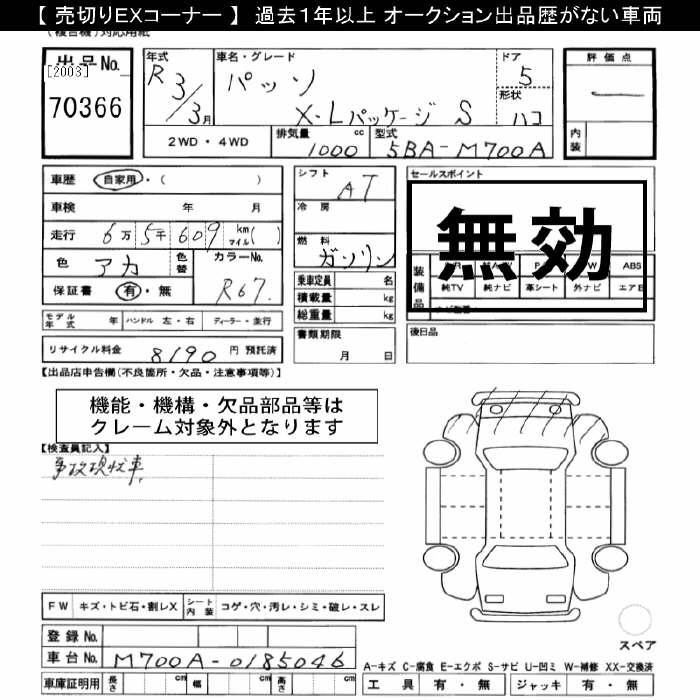 【 売切りEXコーナー 】 過去1年以上 オークション出品歴がない車両
(複合機)対応用紙
出品No.
[2003]
70366
年式
R 3/3月
車名・グレード
パッソ
X-Lパッケージ S
ドア
5
形状
ハコ
評価点
内装
2WD・4WD
排気量 1000 cc
型式 5BA-M700A
車歴 自家用・( )
車検 年 月
走行 6万5千609 km マイル( )
色 アカ 色替 カラーNo. R67.
保証書 有・無
シフト AT
冷房
燃料 ガソリン
乗車定員 名
積載量 kg
総重量 kg
セールスポイント
無効
装備品
ABS
純TV 純ナビ 革シート 外ナビ エアB
モデル年式 年 ハンドル 左・右 ディーラー・並行
書類期限
月 日
後日品
リサイクル料金 8190 円 預託済
【出品店申告欄(不良箇所・欠品・注意事項等)】
機能・機構・欠品部品等は
クレーム対象外となります
【検査員記入】
事故現状車
FW キズ・トビ石・割レX シート内装 コゲ・穴・汚レ・シミ・破レ・スレ
登録No.
車台No. M700A-0185046
車庫証明用 長さ cm 幅 cm 高さ cm
スペア
A-キズ C-腐食 E-エクボ S-サビ U-凹ミ W-補修 XX-交換済
工具 有・無 ジャッキ 有・無